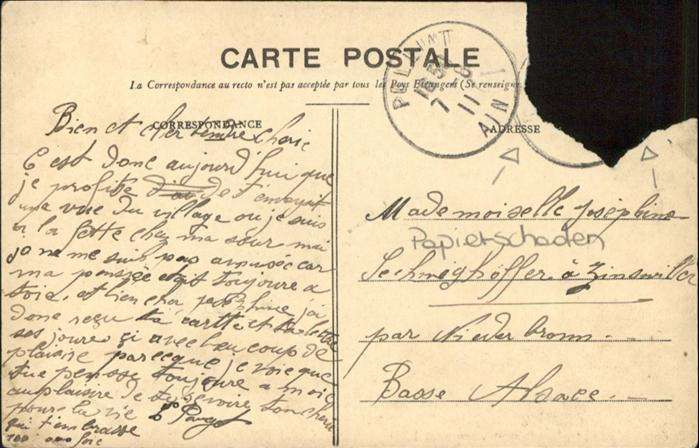 CARTE POSTALE
La Correspondance au recto n'est pas acceptée par tous les Pays Etrangers (Se renseigne
CORRESPONDANCE
ADRESSE
AIN
Bien et cher tendre cherie
C'est donc aujourd'hui que
je profite de t'envoyé
une vue du village ou je suis
a la fette chez ma sœur mai
je ne me suis pas amusée car
ma pensée etait toujours a
toi et bien cher josephine j'ai
donc reçu ta cartte et ta lettre
ses jours si avec beucoup de
plaisir parceque je voie que
tu pensse toujours a moi
au plaisire de te revoire ton cheri
pour la vie
qui t'embrasse
100 000 fois
Mademoiselle Joséphine
Papierschaden
Schmeghoffer à Zinswiller
par Niederbronn
Basse Alsace